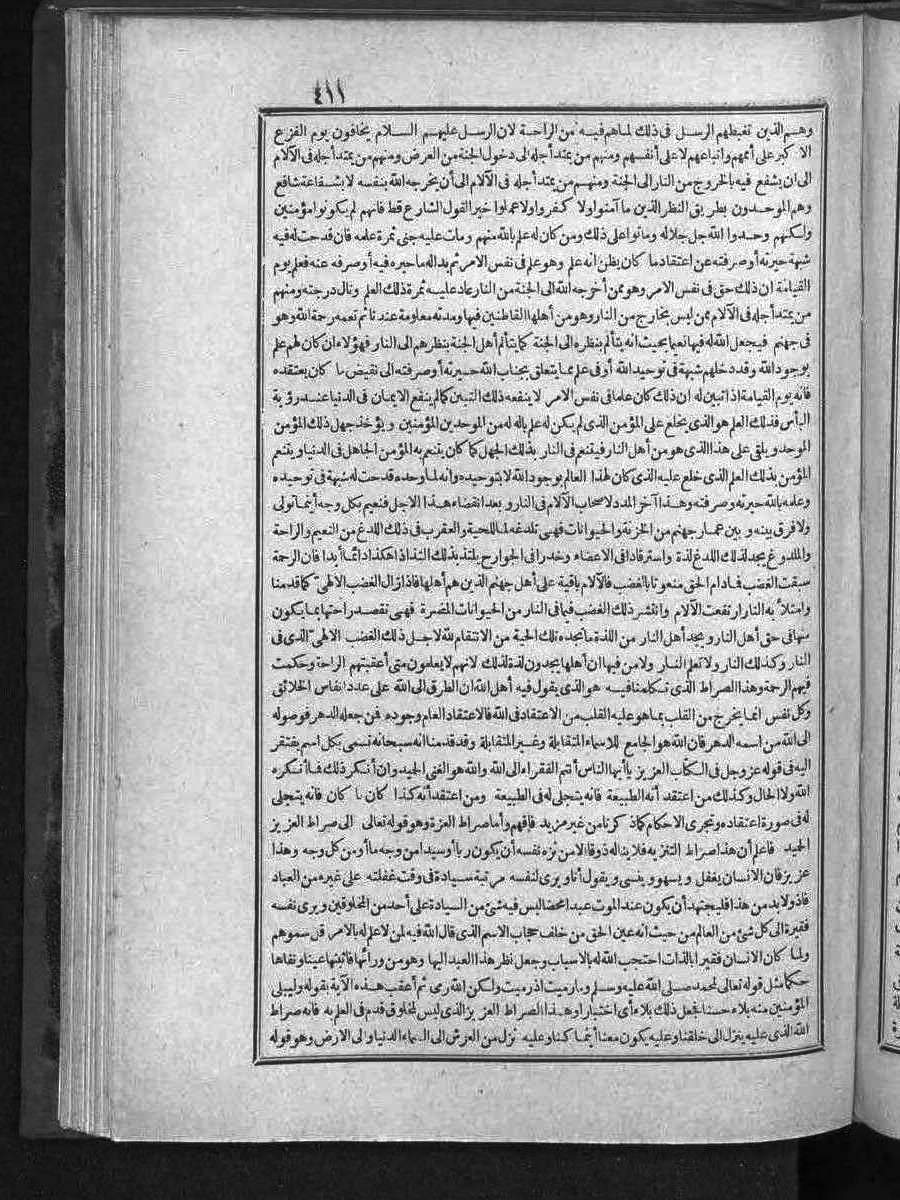 ٤١١
وهم الذين تغبطهم الرسل في ذلك لما هم فيه من الراحة لان الرسل عليهم السلام يخافون يوم الفزع
الاكبر على أممهم واتباعهم لا على أنفسهم ومنهم من يمتد أجله الى دخول الجنة من العرض ومنهم من يمتد أجله في الآلام
الى ان يشفع فيه بالخروج من النار الى الجنة ومنهم من يمتد أجله في الآلام الى أن يخرجه الله بنفسه لا بشفاعة شافع
وهم الموحدون بطريق النظر الذين ما آمنوا ولا كفروا ولا عملوا خيرا لقول الشارع قط فانهم لم يكونوا مؤمنين
ولكنهم وحدوا الله جل جلاله وماتوا على ذلك ومن كان له علم بالله منهم ومات عليه جنى ثمرة علمه فان قدحت له فيه
شبهة حيرته أو صرفته عن اعتقاد ما كان يظن انه علم وهو علم في نفس الامر ثم بدا له ما حيره فيه أو صرفه عنه فعلم يوم
القيامة ان ذلك حق في نفس الامر وهو ممن أخرجه الله الى الجنة من النار عاد عليه ثمرة ذلك العلم ونال درجته ومنهم
من يمتد أجله في الآلام ممن ليس بخارج من النار وهو من أهلها القاطنين فيها ومدته معلومة عندنا ثم تعمه رحمة الله وهو
في جهنم فيجعل الله له فيها نعيما بحيث انه يتألم بنظره الى الجنة كما يتألم أهل الجنة بنظرهم الى النار فهؤلاء ان كان لهم علم
بوجود الله وقد دخلهم شبهة في توحيد الله أو في علم مما يتعلق بجناب الله حيرته أو صرفته الى نقيض ما كان يعتقده
فانه يوم القيامة اذا تبين له ان ذلك كان علما في نفس الامر لا ينفعه ذلك التبين كما لم ينفع الايمان في الدنيا عند رؤية
البأس فذلك العلم هو الذي يخلع على المؤمن الذي لم يكن له علم بالله من الموحدين المؤمنين ويؤخذ جهل ذلك المؤمن
الموحد ويلقى على هذا الذي هو من أهل النار فيتنعم في النار بذلك الجهل كما كان يتنعم به المؤمن الجاهل في الدنيا ويتنعم
المؤمن بذلك العلم الذي خلع عليه الذي كان لهذا العالم بوجود الله لا بتوحيده وانه لما وحده قدحت له شبهة في توحيده
وعلمه بالله حيرته وصرفته وهذا آخر المدد لاصحاب الآلام في النار وبعد انقضاء هذا الاجل فنعيم بكل وجه أينما تولى
ولا فرق بينه وبين عمار جهنم من الخزنة والحيوانات فهي تلدغه لما للحية والعقرب في ذلك اللدغ من النعيم والراحة
والملدوغ يجد لذلك اللدغ لذة واسترقادا في الاعضاء وخدرا في الجوارح يلتذ بذلك التذاذا هكذا دائما أبدا فان الرحمة
سبقت الغضب فمادام الحق منعوتا بالغضب فالآلام باقية على أهل جهنم الذين هم أهلها فاذا زال الغضب الالهي كما قدمنا
وامتلأ به النار ارتفعت الآلام وانتشر ذلك الغضب فيما في النار من الحيوانات المضرة فهي تقصد راحتها بما يكون
منها في حق أهل النار ويجد أهل النار من اللذة ما تجده تلك الحية من الانتقام لله لاجل ذلك الغضب الالهي الذي في
النار وكذلك النار ولا تعلم النار ولا من فيها ان أهلها يجدون لذة لذلك لانهم لا يعلمون متى أعقبتهم الراحة وحكمت
فيهم الرحمة وهذا الصراط الذي تكلمنا فيه هو الذي يقول فيه أهل الله ان الطرق الى الله على عدد انفاس الخلائق
وكل نفس انما يخرج من القلب بما هو عليه القلب من الاعتقاد في الله فالاعتقاد العام وجوده فمن جعله الدهر فوصوله
الى الله من اسمه الدهر فان الله هو الجامع للاسماء المتقابلة وغير المتقابلة وقد قدمنا انه سبحانه تسمى بكل اسم يفتقر
اليه في قوله عز وجل في الكتاب العزيز يا أيها الناس أنتم الفقراء الى الله والله هو الغني الحميد وان أنكر ذلك فما أنكره
الله ولا الحال وكذلك من اعتقد أنه الطبيعة فانه يتجلى له في الطبيعة ومن اعتقد أنه كذا كان ما كان فانه يتجلى
له في صورة اعتقاده وتجري الاحكام كما ذكرنا من غير مزيد فافهم وأما صراط العزة وهو قوله تعالى الى صراط العزيز
الحميد فاعلم أن هذا صراط التنزيه فلا يناله ذوقا الا من نزه نفسه أن يكون ربا أو سيدا من وجه ما أو من كل وجه وهذا
عزيز فان الانسان يغفل ويسهو وينسى ويقول أنا ويرى لنفسه مرتبة سيادة في وقت غفلته على غيره من العباد
فاذ ولا بد من هذا فليجتهد أن يكون عند الموت عبدا محضا ليس فيه شئ من السيادة على أحد من المخلوقين ويرى نفسه
فقيرة الى كل شئ من العالم من حيث انه عين الحق من خلف حجاب الاسم الذي قال الله فيه لمن لا علم له بالامر قل سموهم
ولما كان الانسان فقيرا بالذات احتجب الله له بالاسباب وجعل نظر هذا العبد اليها وهو من ورائها فاثبتها عينا ونفاها
حكما مثل قوله تعالى لمحمد صلى الله عليه وسلم وما رميت اذ رميت ولكن الله رمى ثم أعقب هذه الآية بقوله وليبلي
المؤمنين منه بلاء حسنا فجعل ذلك بلاء أي اختبارا وهذا الصراط العزيز الذي ليس لمخلوق قدم في العلم به فانه صراط
الله الذي عليه ينزل الى خلقنا وعليه يكون معنا أينما كنا وعليه نزل من العرش الى السماء الدنيا والى الارض وهو قوله